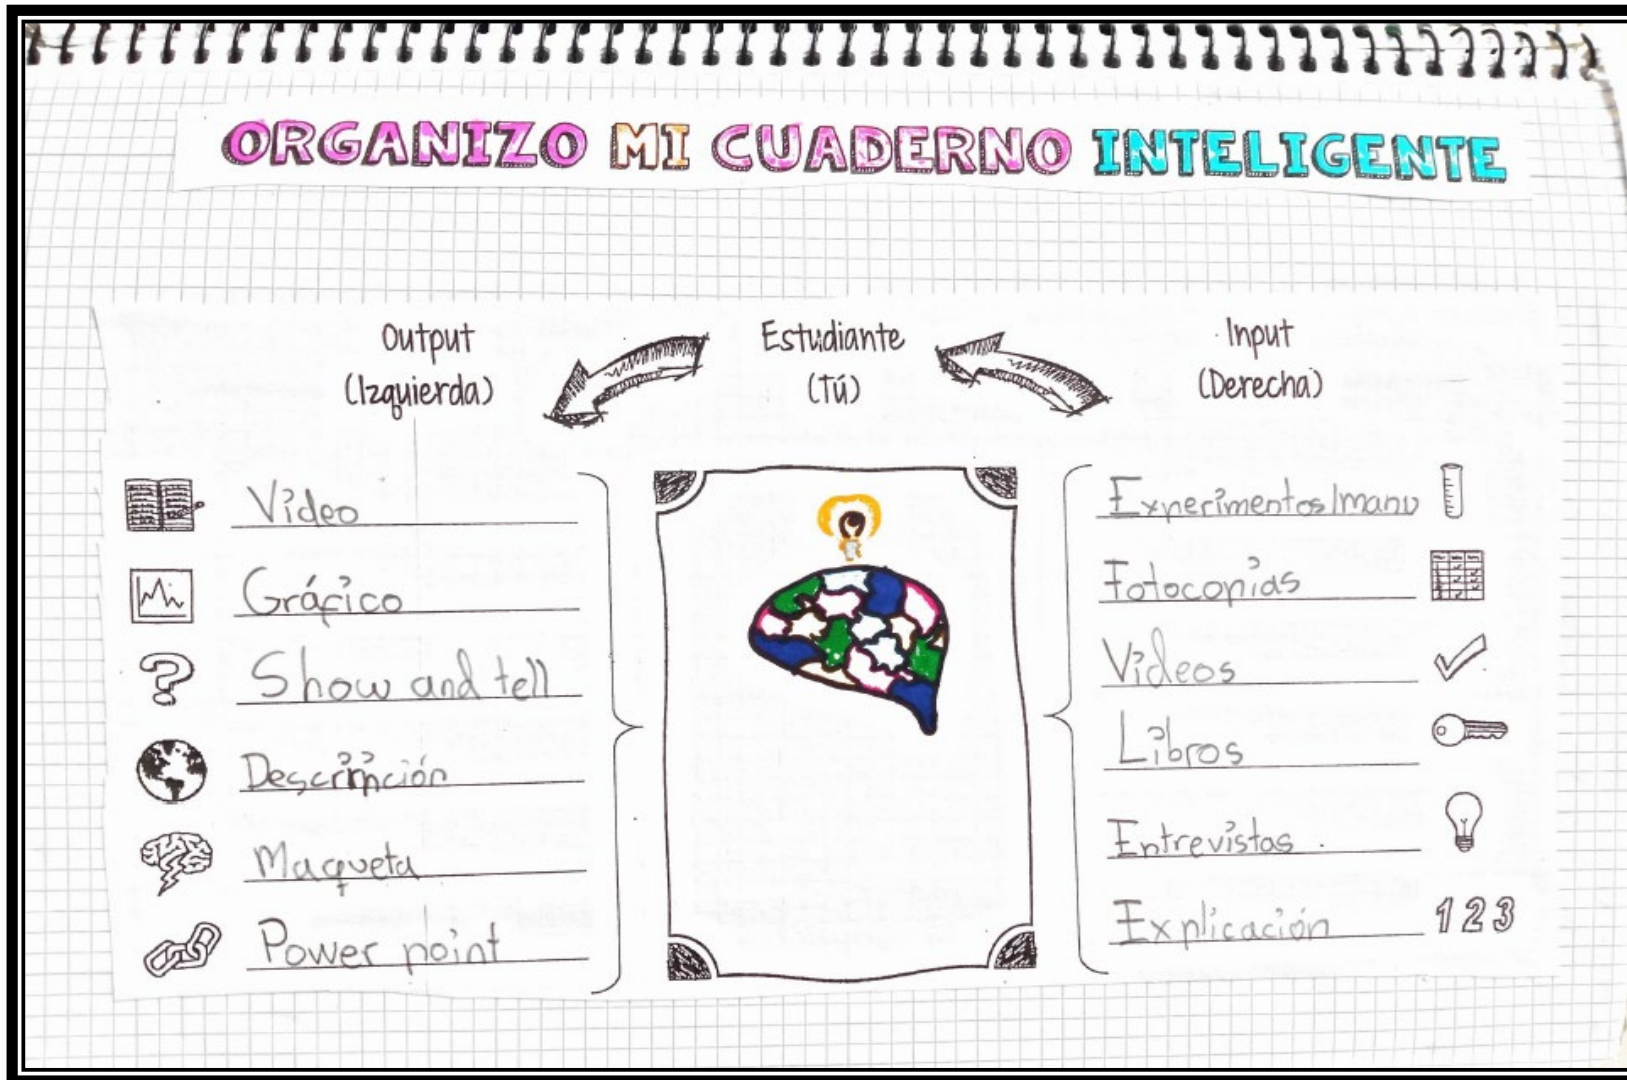 ORGANIZO MI CUADERNO INTELIGENTE
Output
(Izquierda)
Estudiante
(Tú)
Input
(Derecha)
Video
Gráfico
Show and tell
Descripción
Maqueta
Power point
Experimentos/manu
Fotocopias
Videos
Libros
Entrevistas
Explicación
123